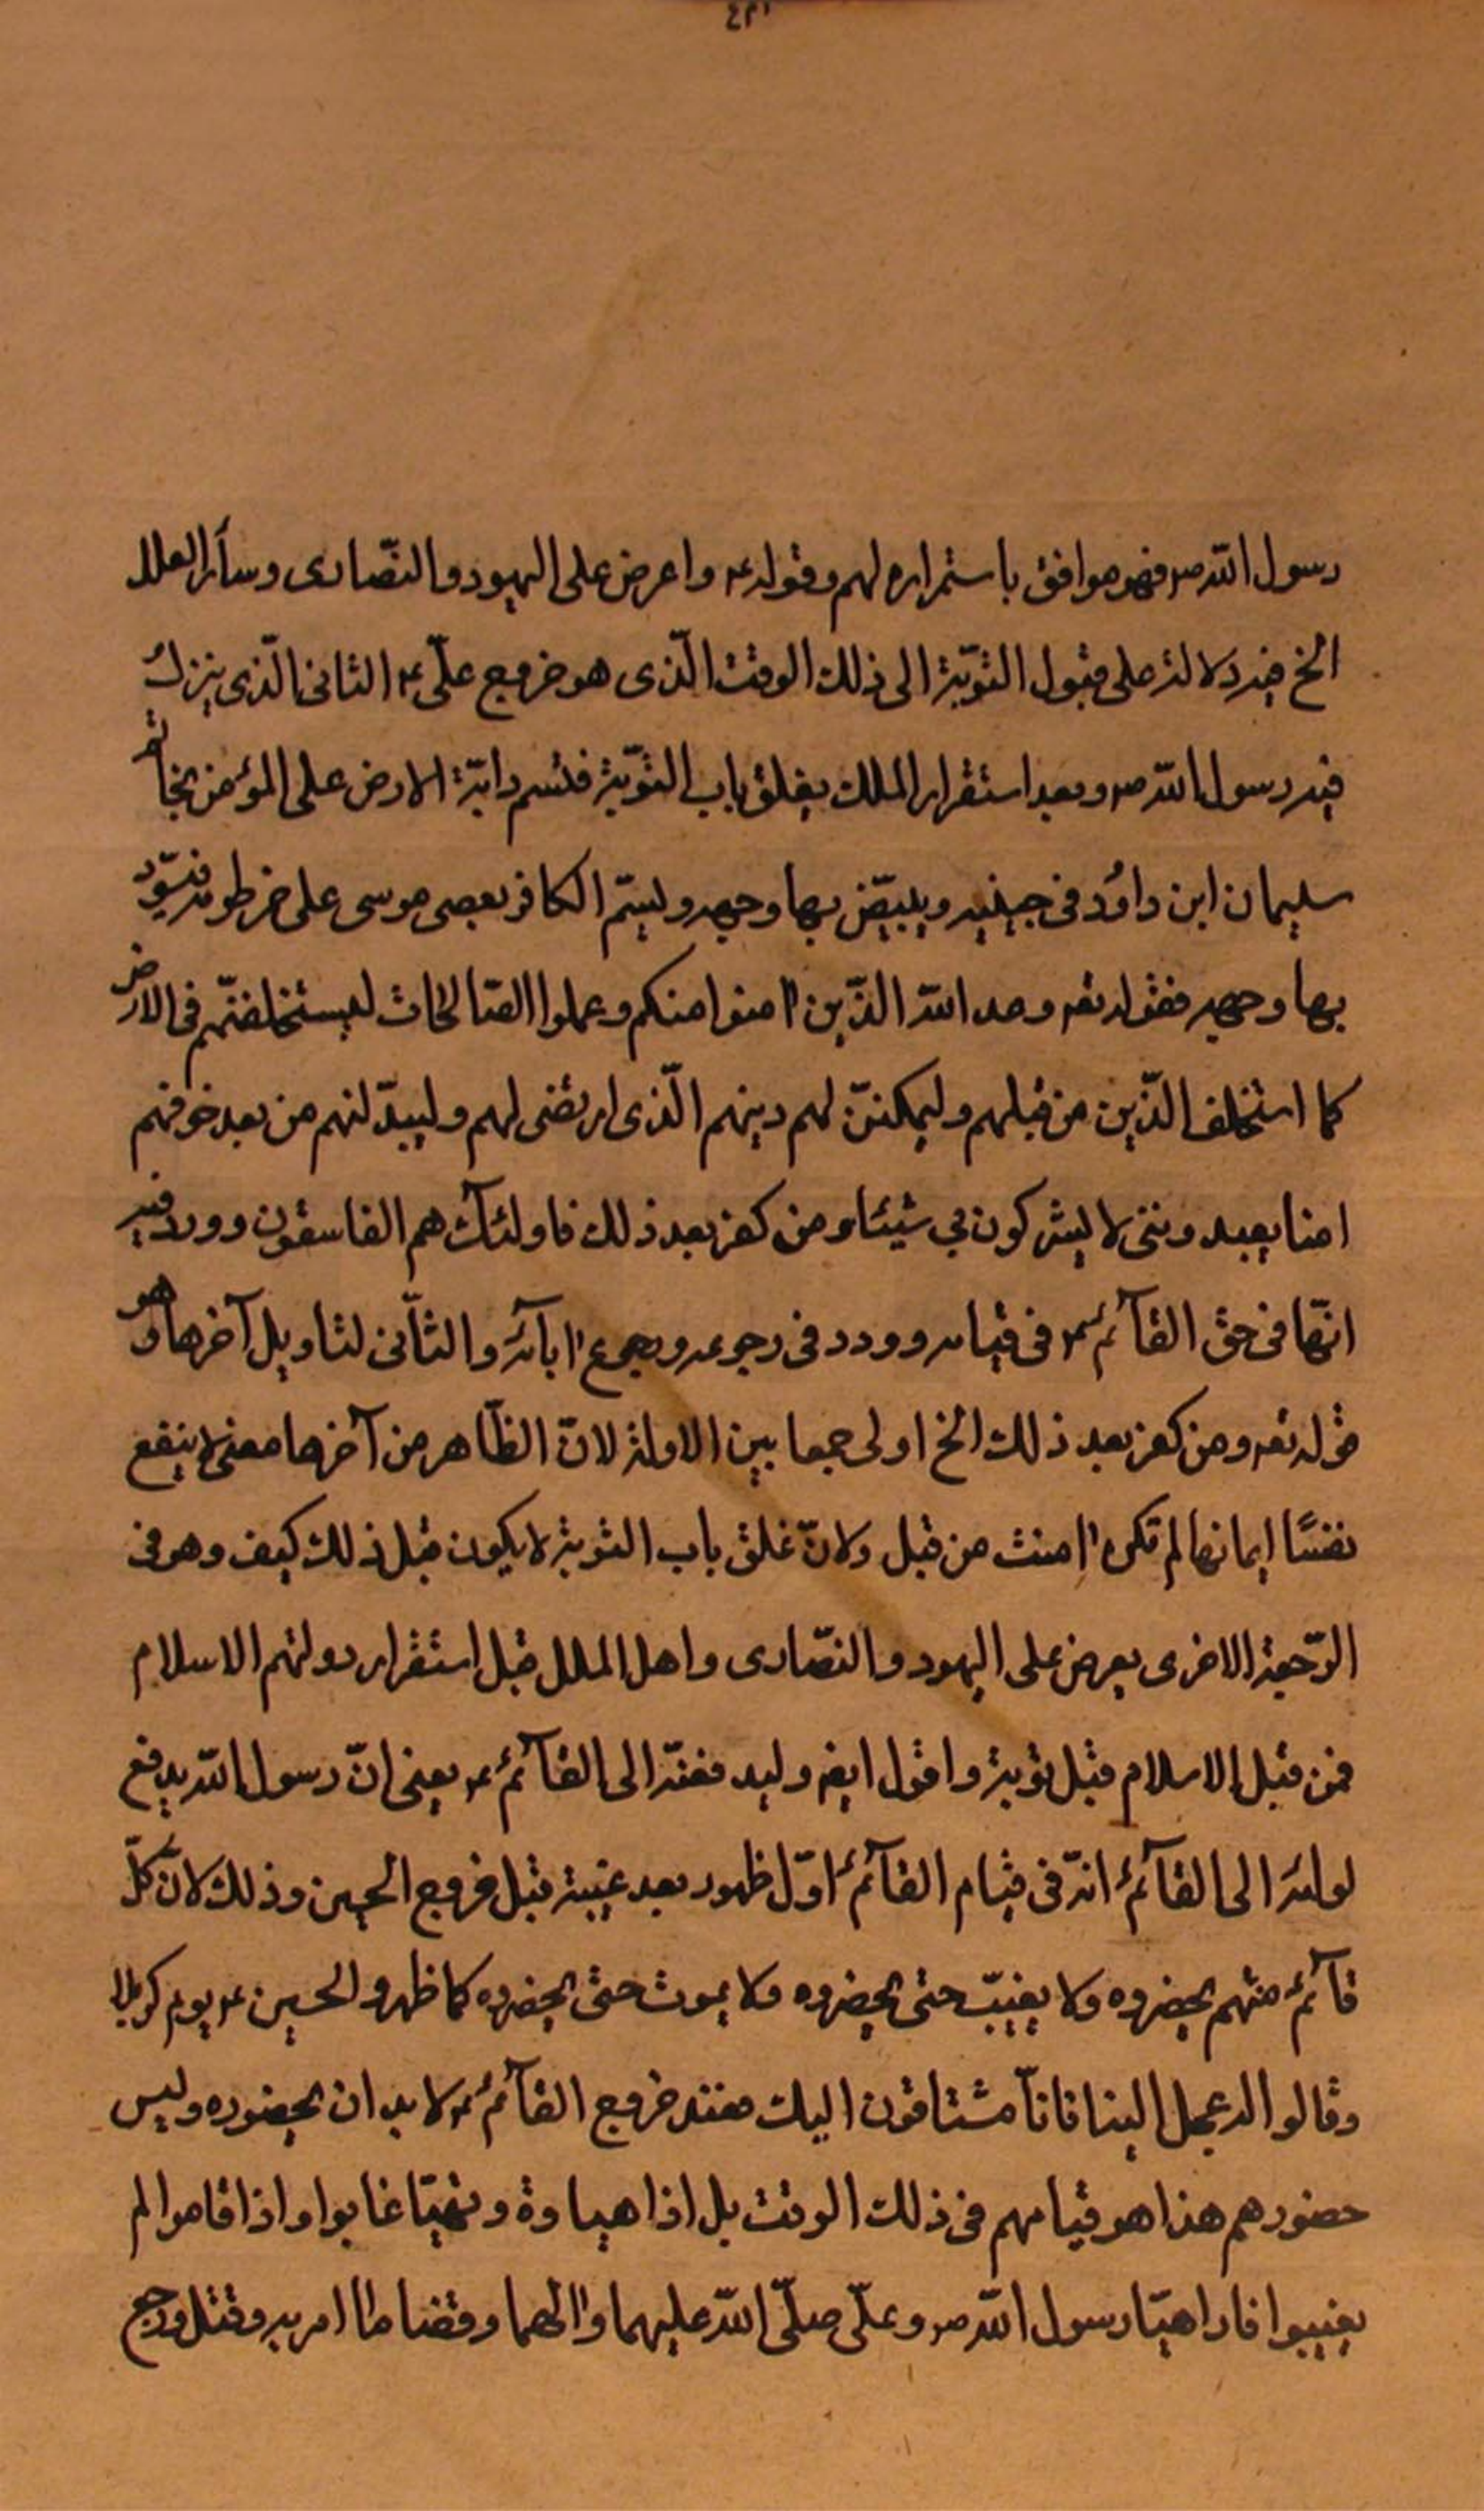 رسول اللّه ص فهو موافق باستمراره لهم وقوله ع واعرض على اليهود والنّصارى وسآئر الملل
الخ فيه دلالة على قبول التّوبة الى ذلك الوقت الّذى هو خروج علىّ ع الثانى الّذى ينزل
فيه رسول اللّه ص وبعد استقرار الملك يغلق باب التّوبة فتسم دابّة الارض على المؤمن بخاتم
سليمان ابن داود فى جبينه ويبيّض بها وجهه وليتم الكافر بعصى موسى على خرطومه فيسوّد
بها وجهه فقوله تعه وعد اللّه الّذين امنوا منكم وعملوا الصّالحات ليستخلفنّهم فى الارض
كما استخلف الّذين من قبلهم وليمكننّ لهم دينهم الّذى ارتضى لهم وليبدّلنهم من بعد خوفهم
امنا يعبدوننى لا يشركون بي شيئا ومن كفر بعد ذلك فاولئك هم الفاسقون وورد فيه
انّها فى حق القآئم ع فى قيامه وورد فى رجوعه ورجوع ابآئه والثّانى لتاويل آخرها وهو
قوله تعه ومن كفر بعد ذلك الخ اولى جمعا بين الاولة لانّ الظّاهر من آخرها معنى لا ينفع
نفسًا ايمانها لم تكن امنت من قبل ولانّ غلق باب التوبة لا يكون قبل ذلك كيف وهو فى
الرّجعة الاخرى يعرض على اليهود والنّصارى واهل الملل قبل استقرار دولتهم الاسلام
فمن قبل الاسلام قبل توبة واقول ايضه وليد فعنّه الى القآئم ع يعنى انّ رسول اللّه يدفع
لوائه الى القآئم انّه فى قيام القآئم اوّل ظهور بعد غيبة قبل خروج الحسين وذلك لانّ كلّ
قآئم منهم يحضروه ولا يغيبّ حتى يحضروه ولا يموت حتى يحضروه كما ظهروا لحسين ع يوم كربلا
وقالوا له عجل الينا فانّا مشتاقون اليك فعند خروج القآئم ع لا بد ان يحضوره وليس
حضورهم هذا هو قيامهم فى ذلك الوقت بل اذا هياوة وتهيّا غابوا واذا قاموا لم
يغيبوا فاذا هيّا رسول اللّه ص وعلىّ صلّى اللّه عليهما والهما وقضا ما امر به وقتل ورجع